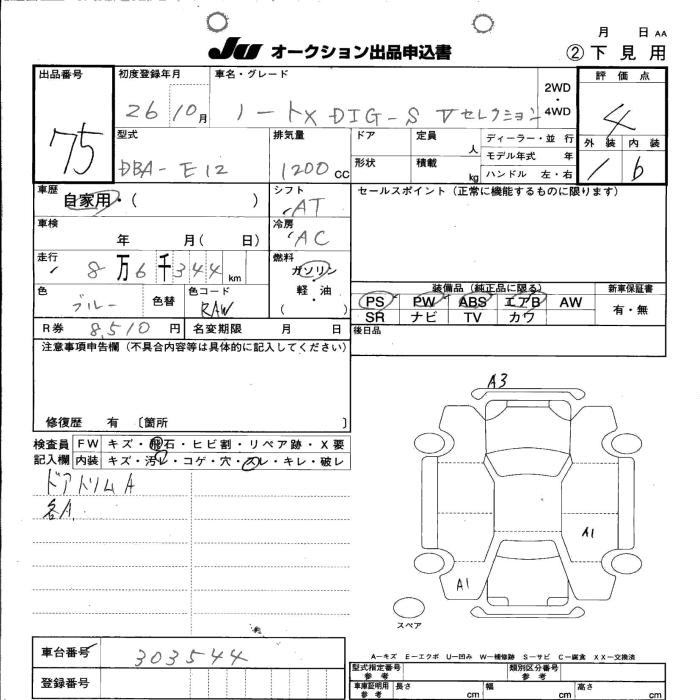 月 日 AA
JU オークション出品申込書 ②下見用
出品番号 75
初度登録年月 26 10月
車名・グレード ノートX DIG-S Vセレクション
2WD・4WD
評価点 4
外装 1 内装 b
型式 DBA-E12
排気量 1200cc
ドア 定員 人
形状 積載 kg
ディーラー・並行
モデル年式 年
ハンドル 左・右
車歴 自家用・( )
シフト AT
セールスポイント (正常に機能するものに限ります)
車検 年 月( 日)
冷房 AC
走行 8万6千344km
燃料 ガソリン 軽・油 ( )
色 ブルー 色替 色コード RAW
装備品 (純正品に限る) 新車保証書
PS PW ABS エアB AW 有・無
SR ナビ TV カワ
R券 8,510円 名変期限 月 日
後日品
注意事項申告欄 (不具合内容等は具体的に記入してください)
修復歴 有 〔箇所 〕
検査員記入欄
FW キズ・飛石・ヒビ割・リペア跡・X要
内装 キズ・汚レ・コゲ・穴・スレ・キレ・破レ
ドアトリムA
各A
A3
A1
A1
スペア
A-キズ E-エクボ U-凹み W-補修跡 S-サビ C-腐食 XX-交換済
車台番号 303544
登録番号
型式指定番号 参考 類別区分番号 参考
車庫証明用 参考 長さ cm 幅 cm 高さ cm